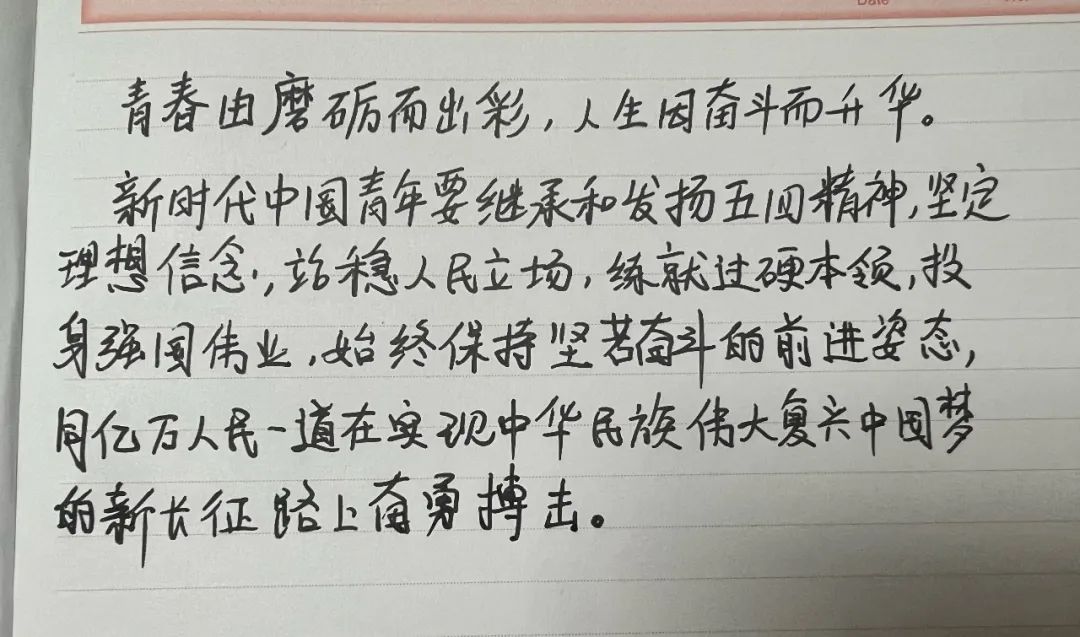 Date
青春由磨砺而出彩，人生因奋斗而升华。
新时代中国青年要继承和发扬五四精神，坚定
理想信念，站稳人民立场，练就过硬本领，投
身强国伟业，始终保持坚苦奋斗的前进姿态，
同亿万人民一道在实现中华民族伟大复兴中国梦
的新长征路上奋勇搏击。